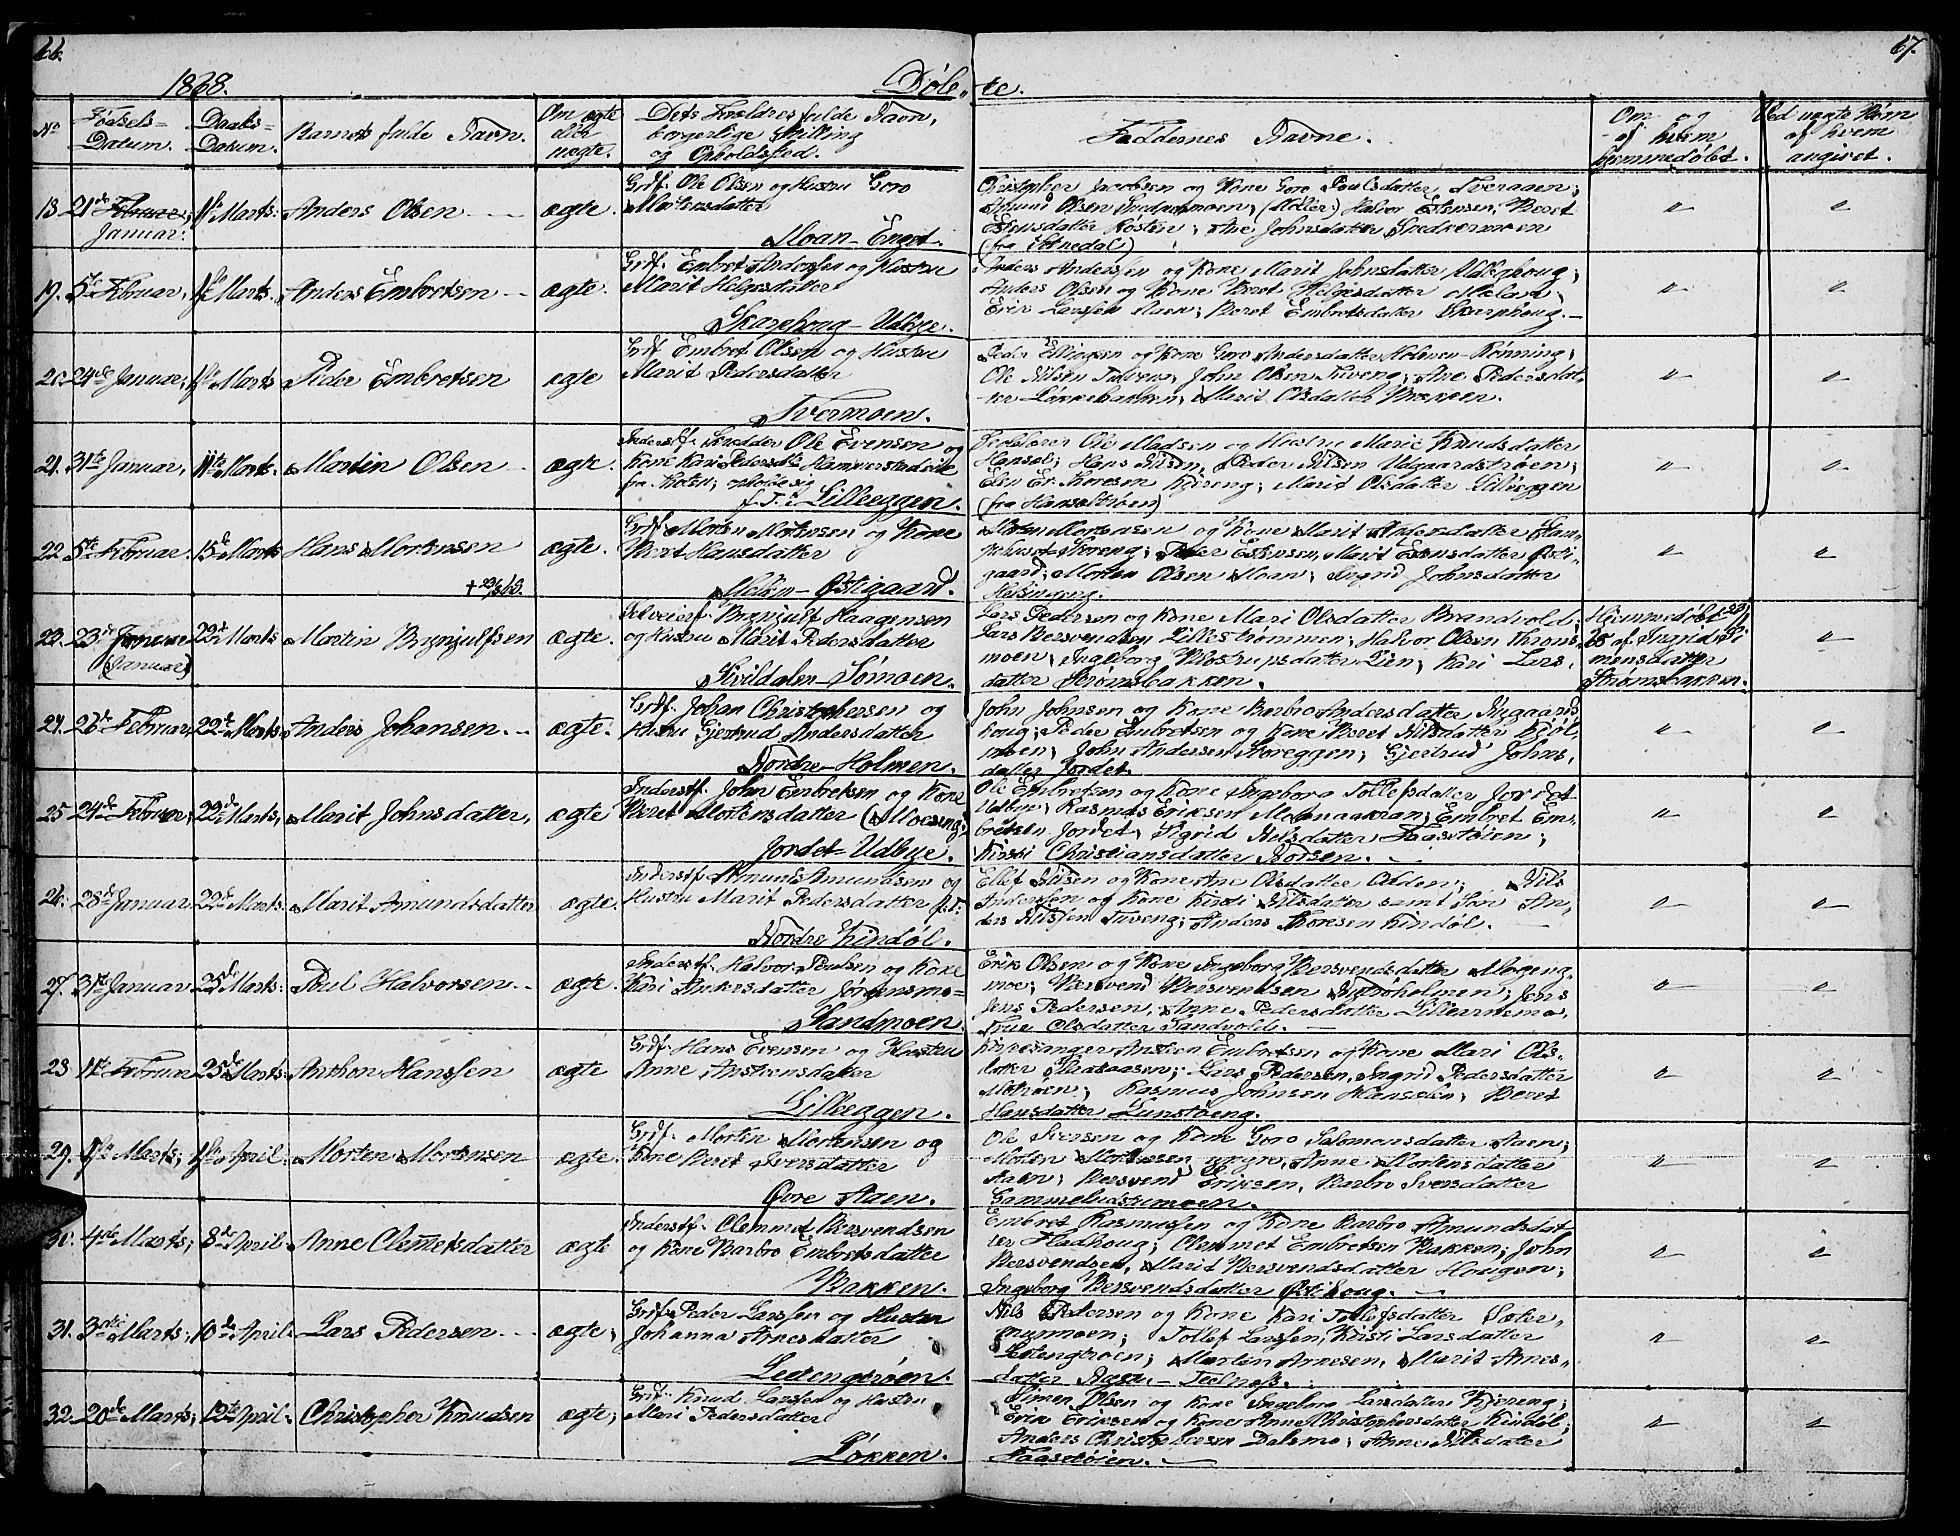 66.
67.
1868.
Døbte.
No
Fødsels-Datum.
Daabs-Datum.
Barnets fulde Navn.
Om ægte eller uægte.
Dets Forældres fulde Navn, borgerlige Stilling og Opholdssted.
Faddernes Navne.
Om og af hvem hjemmedøbt.
Ved uægte Børn af hvem angivet.
18. 21de Februar; Januar. 1ste Marts. Anders Olsen ægte.
Grdf. Ole Olsen og Hustru Goro
Mortensdatter
Moan-Enget.
Christopher Jacobsen og Kone Goro Poulsdatter Tveraaen;
Amund Olsen Snedkermoen; (Møller) Halvor Estensen, Beret
Estensdatter Kosten; Ane Johnsdatter Snedkermoen
19. 5te Februar, 1ste Marts. Anders Embretsen ægte.
Grdf. Embret Anderssen og Hustru
Marit Helgesdatter
Skarphoug-Udbye.
Anders Anderssen og Kone Marit Johnsdatter Udbyhoug;
Anders Olsen og Kone Beret Helgesdatter
Erik Larssen Aaen; Beret Embretsdatter Skarphoug.
20. 24de Januar; 1ste Marts Peder Embretsen ægte
Grdf Embret Olsen og Hustru
Marit Pedersdatter
Tvermoen.
Peder og Kone Goro Andersdatter Rønning;
Ole Nilsen Tuveng, John Olsen Tuveng; Ane Pedersdat-
ter Løkkebakken; Marit Olsdatter Brækken.
21. 31te Januar, 11te Marts. Martin Olsen ægte.
Inderstf. Skredder Ole Evensen og
Kone Kari Pedersdtr
f.T. Lilleeggen.
Ole Madsen og Hustru Marie Knudsdatter
Hansel; Hans Nilsen, Peder Nilsen Udgaardstrøen;
Kjereng; Marit Olsdatter Lilleeggen
(fra Hanseltrøen)
22. 5te Februar. 15de Marts Hans Mortensen ægte.
Grdf. Morten Mortensen og Kone
Beret Hansdatter
Mælen-Østigaard.
Morten Mortensen og Kone Marit Andersdatter
Peder Estensen, Marit Estensdatter Østi-
gaard; Morten Olsen Moan; Ingrid Johnsdatter
23. 23de Januar (Januar) 22de Marts Martin Brynjulfsen ægte.
Selveierf. Brynjulf Haagensen
og Hustru Marit Pedersdatter
Sømoen.
Lars Pedersen og Kone Mari Olsdatter Brandvold;
Lars Bersvendsen Lillestrømmen; Halvor Olsen Throns-
moen; Ingeborg Lien; Kari Lars-
datter Strømsbakken.
Hjemmedøbt
af Ingrid Si-
monsdatter
Strømsbakken.
24. 26de Februar, 22de Marts. Anders Johansen ægte.
Grdf. Johan Christophersen og
Hustru Gjertrud Andersdatter
Nordre-Holmen.
John Johnsen og Kone Barbro Andersdatter
houg; Peder Embretsen og Kone Beret Nilsdatter Kjøl-
moen; John Andersen Storeggen; Gjertrud Johns-
datter Jordet.
25 24de Februar; 22de Marts, Marit Johnsdatter, ægte
Inderstf. John Embretsen og Kone
Beret Mortensdatter (Moseng)
Jordet-Udbye.
Ole Embretsen og Kone Ingeborg Tollefsdatter Jordet
Udbye; Rasmus Eriksen Moanaakran; Embret Em-
bretsen Jordet; Sigrid Nilsdatter Faastøien;
Kirsti Christiansdatter Norsen.
26. 28de Januar 22de Marts. Marit Amundsdatter ægte.
Inderstf Amund Amundsen og
Hustru Marit Pedersdatter f.T.
Nordre Kindøl.
Ellef Nilsen og Kone Ane Olsdatter Odden; Nils
Anderssen og Kone Kirsti Nilsdatter samt Søn An-
ders Nilssen Tuveng; Anders Thoresen Kindøl.
27. 31te Januar 25de Marts. Poul Halvorsen ægte.
Inderstf. Halvor Poulsen og Kone
Kari Ankersdatter Jørgensmo-
Sandmoen.
Erik Olsen og Kone Ingeborg Bersvendsdatter Mogeng-
moe; Bersvend Bersvendsen; Jens
Jens Pedersen, Anne Pedersdatter
Olsdatter Sandvold.
28 11te Februar 25de Marts. Anthon Hanssen ægte
Grdf. Hans Evensen og Hustru
Anne Anstensdatter
Lilleeggen.
Kirkesanger Ansteen Embretsen og Kone Mari Ols-
datter; Lars Pedersen, Ingrid Pedersdatter
Rasmus Johnsen Hanselen; Beret
Hansdatter Lunstøeng.
29. 1ste Marts; 1ste April. Morten Mortensen ægte.
Grdf. Morten Mortensen og
Kone Beret Iversdatter
Øvre Aaen.
Ole Iversen og Kone Goro Salomonsdatter Aaen;
Morten Mortensen yngre, Anne Mortensdatter
Aaen; Bersvend Eriksen, Barbro Iversdatter
Gammeludstumoen.
30. 4de Marts; 8de April. Anne Clemmetsdatter ægte
Inderstf. Clemmet Bersvendsen
og Kone Barbro Embretsdatter
Bakken.
Embret Rasmussen og Kone Barbro Amundsdat-
ter Fladhoug; Clemmet Embretsen Bakken; John
Bersvendsen, Marit Bersvendsdatter Hougen;
Ingeborg Bersvendsdatter Østihoug.
31. 3die Marts; 10de April. Lars Pedersen ægte;
Grdf. Peder Larssen og Hustru
Johanna Arnesdatter
Ledengtrøen.
Nils Pedersen og Kone Kari Tollefsdatter Sæter-
mumoen; Tollef Larssen, Kirsti Larsdatter
Ledengtrøen; Morten Arnesen, Marit Arnes-
datter
32. 20de Marts; 12te April. Christopher Knudsen ægte;
Grdf. Knud Larssen og Hustru
Mari Pedersdatter
Løkken.
Simen Olsen og Kone Ingeborg Larsdatter Kjereng;
Erik Eriksen og Kone Anne Christophersdatter Kindøl;
Anders Christophersen Dalsmo; Anne Nilsdatter
Faastøien.